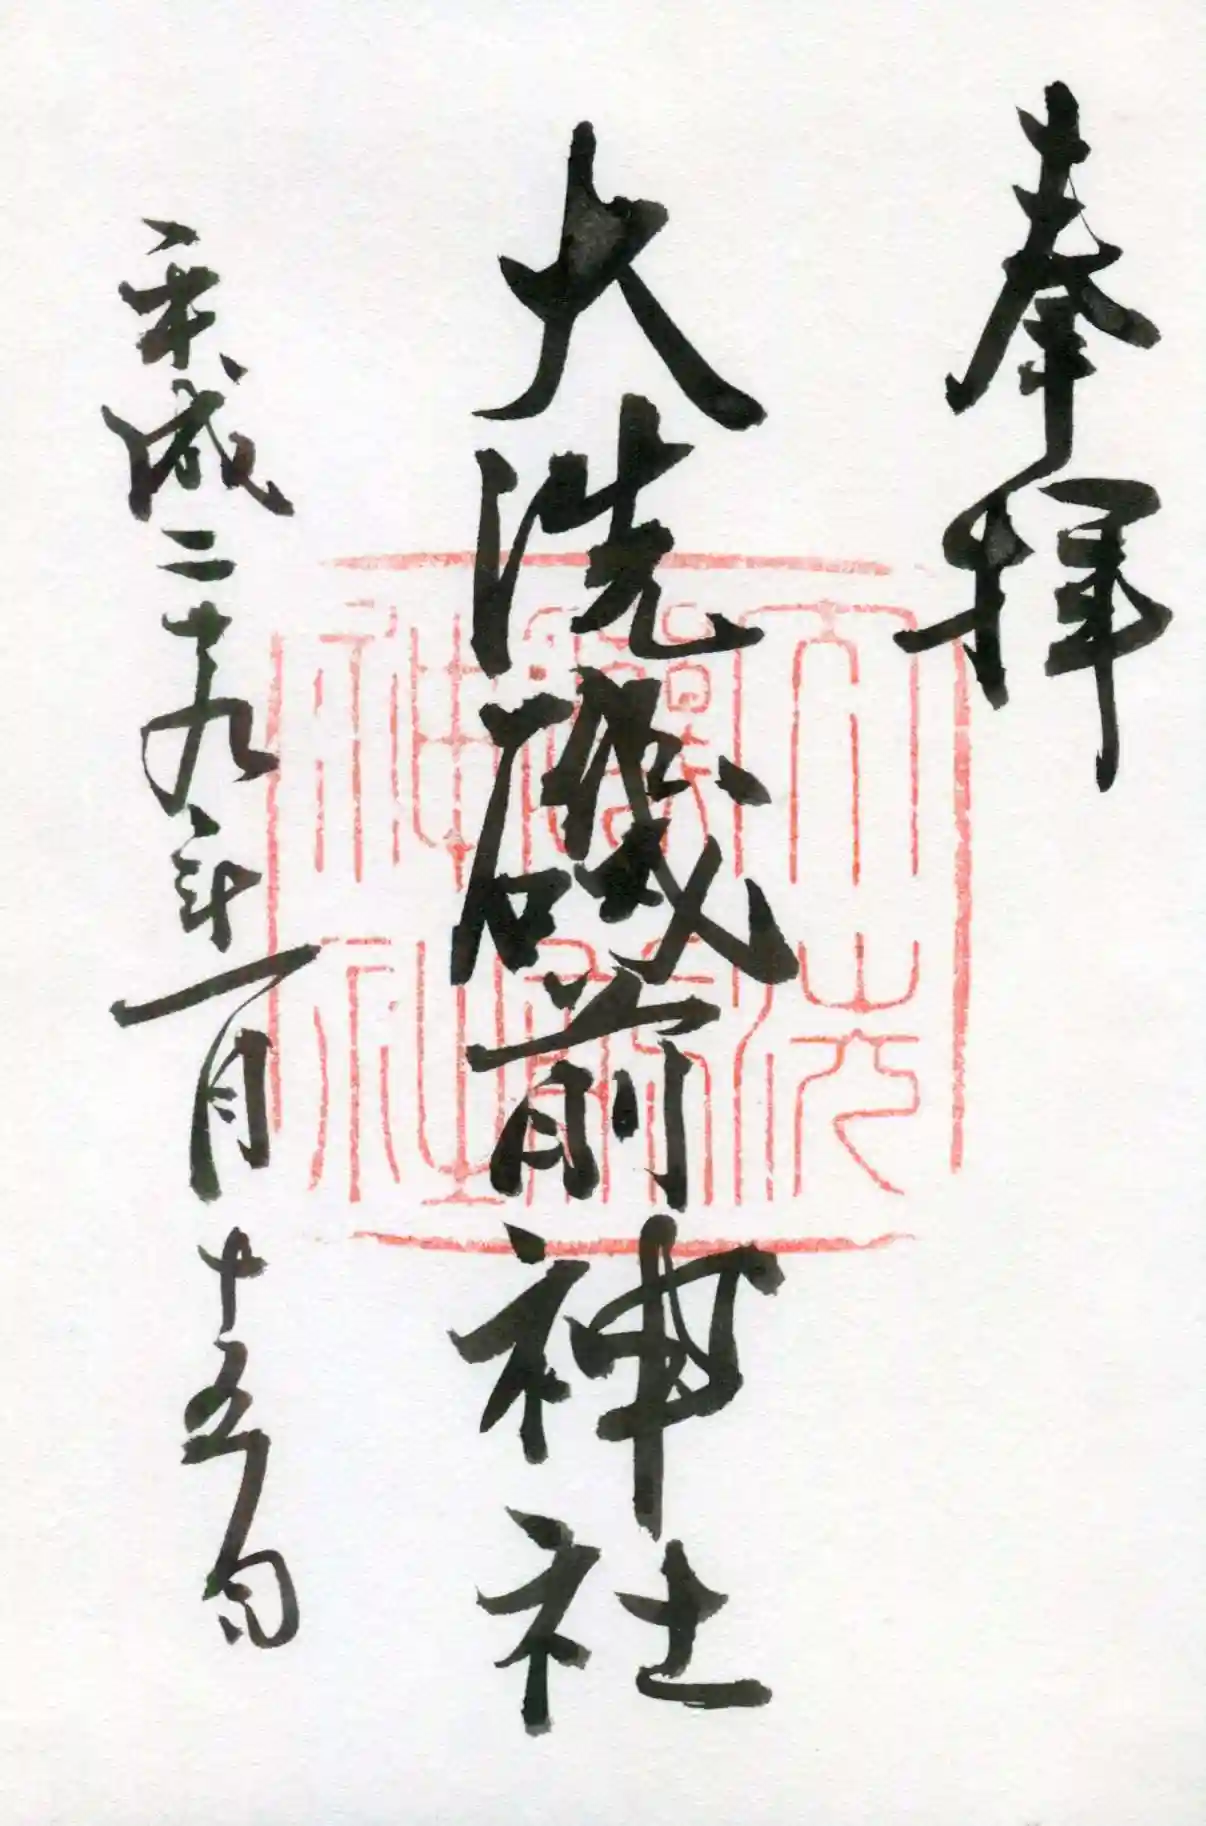 奉拝
大洗磯前神社
平成二十九年一月十五日
大洗磯前神社